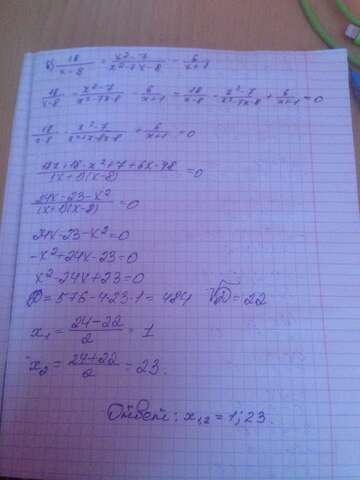 б) 18/(x-8) = (x²-7)/(x²-7x-8) - 6/(x+1)
18/(x-8) - (x²-7)/(x²-7x-8) - 6/(x+1) = 18/(x-8) - (x²-7)/(x²-7x-8) + 6/(x+1) = 0
18/(x-8) - (x²-7)/(x²+x-8x-8) + 6/(x+1) = 0
(18x+18-x²+7+6x-48)/((x+1)(x-8)) = 0
(24x-23-x²)/((x+1)(x-8)) = 0
24x-23-x²=0
-x²+24x-23=0
x²-24x+23=0
D=576-4·23·1=484 √D=22
x₁ = (24-22)/2 = 1
x₂ = (24+22)/2 = 23.
Ответ: x₁,₂ = 1; 23.